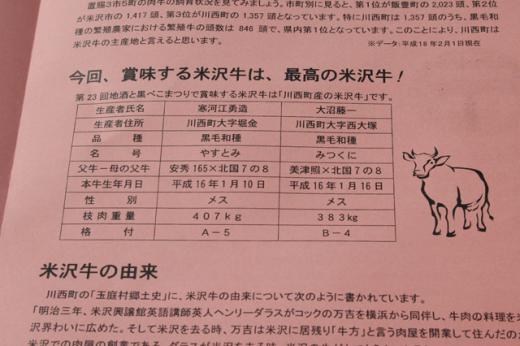 置賜3市5町の肉牛の飼育状況を見てみましょう。市町別に見ると、第1位が飯豊町の 2,023 頭、第2位
が米沢市の 1,417 頭、第3位が川西町の 1,357 頭となっています。特に川西町は 1,357 頭のうち、黒毛和
種の繁殖農家における繁殖牛の頭数は 846 頭で、県内第1位となっています。このことにより、川西町は
米沢牛の主産地と言えると思います。 ※データ:平成18年2月1日現在
今回、賞味する米沢牛は、最高の米沢牛!
第23回地酒と黒べこまつりで賞味する米沢牛は「川西町産の米沢牛」です。
生産者氏名 寒河江勇造 大沼藤一
生産者住所 川西町大字堀金 川西町大字西大塚
品種 黒毛和種 黒毛和種
名号 やすとみ みつくに
父牛-母の父牛 安秀165×北国7の8 美津照×北国7の8
本牛生年月日 平成16年1月10日 平成16年1月16日
性別 メス メス
枝肉重量 407kg 383kg
格付 A-5 B-4
米沢牛の由来
川西町の「玉庭村郷土史」に、米沢牛の由来について次のように書かれています。
「明治三年、米沢興譲館英語講師英人ヘンリーダラスがコックの万吉を横浜から同伴し、牛肉の料理を米
沢界わいに広めた。そして米沢を去る時、万吉は米沢に居残り「牛方」と言う肉屋を開業して住んだの